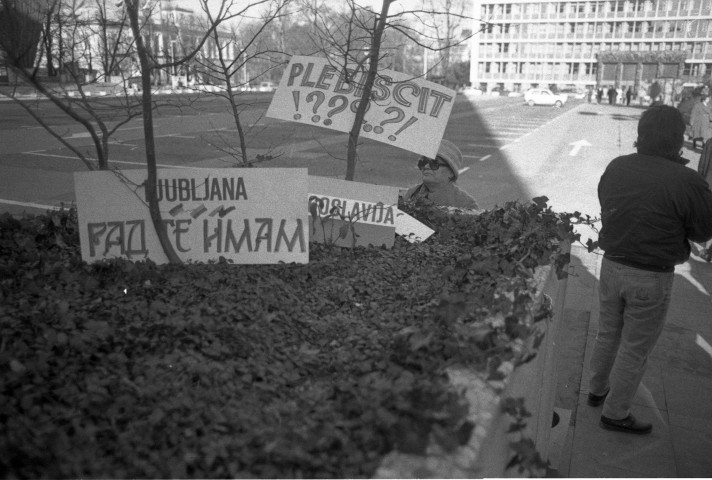 PLEBISCIT
!??%..?!
LJUBLJANA
РАД ТЕ ИМАМ
GOSLAVIJA